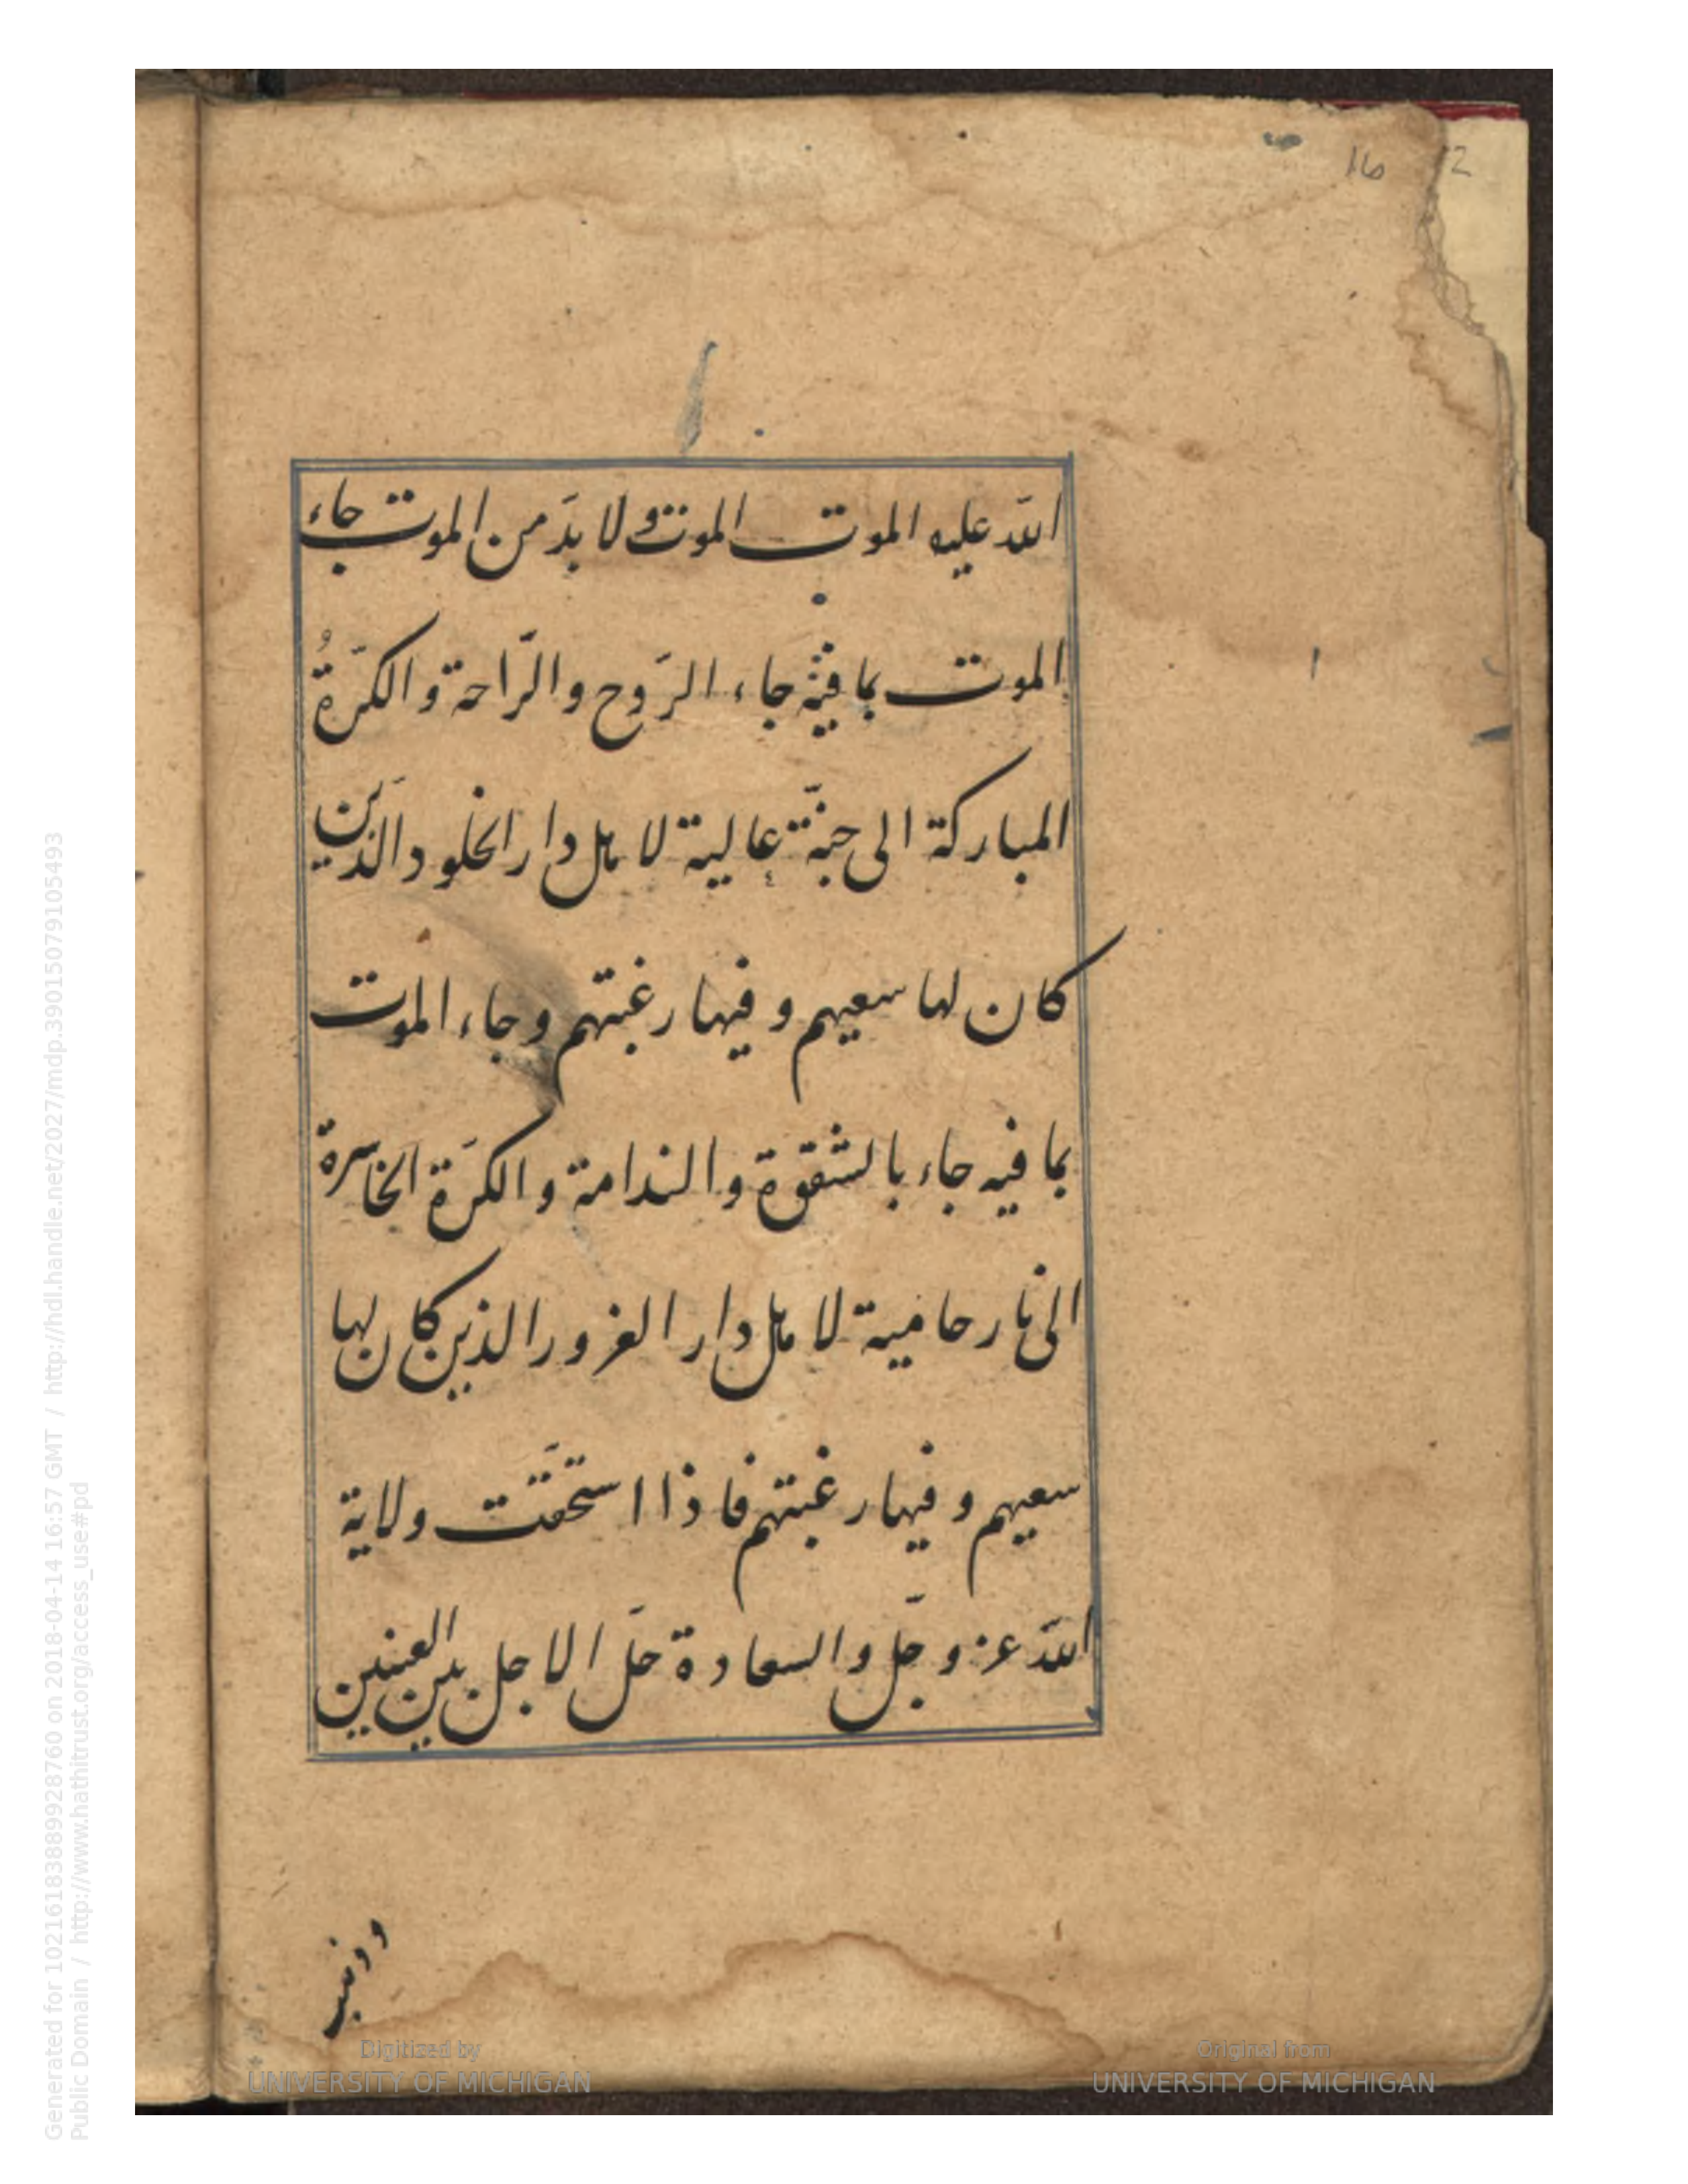 16 2
الله عليه الموت الموت ولا بدّ من الموت جاء
الموت بما فيه جاء الرّوح والرّاحة والكرّةُ
المباركة الى جنّة عالية لاهل دار الخلود الذين
كان لها سعيهم و فيها رغبتهم و جاء الموت
بما فيه جاء بالشقوة والندامة و الكرّة الخاسرة
الى نار حامية لاهل دار الغرور الذين كان لها
سعيهم و فيها رغبتهم فاذا استحقّت ولاية
اللّه عز و جلّ والسعادة حلّ الاجل بين العينين
Digitized by
UNIVERSITY OF MICHIGAN
Original from
UNIVERSITY OF MICHIGAN
Generated for 10216183838899928760 on 2018-04-14 16:57 GMT / http://hdl.handle.net/2027/mdp.39015079105493
Public Domain / http://www.hathitrust.org/access_use#pd